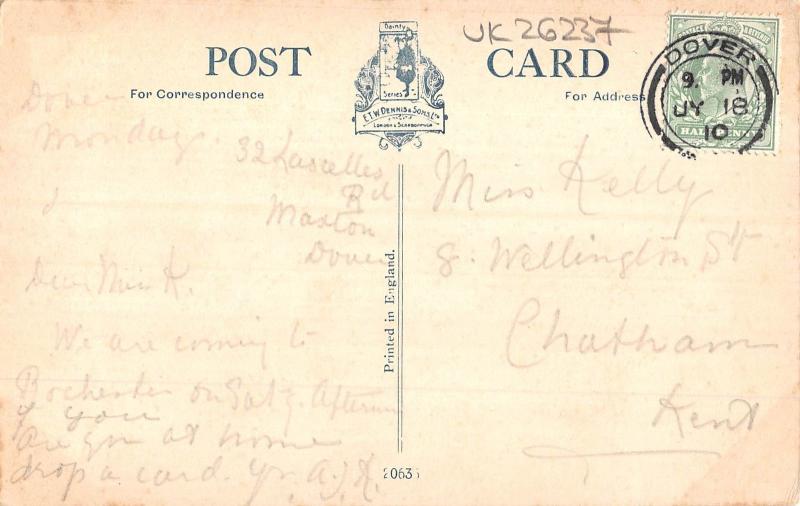 UK 26237
POST CARD
For Correspondence
For Address
Dainty
Series
E.T.W. DENNIS & SONS, LTD
LONDON & SCARBOROUGH
DOVER
9. PM
JY 18
10
HALFPENNY
Dover
Monday.
32 Lascelles
Rd
Maxton
Dover
Dear Miss K.
We are coming to
Rochester on Saty. Afternoon
If you
are you at home
drop a card. Yr. A.J.K.
Printed in England.
2063
Miss Kelly
8. Wellington St
Chatham
Kent